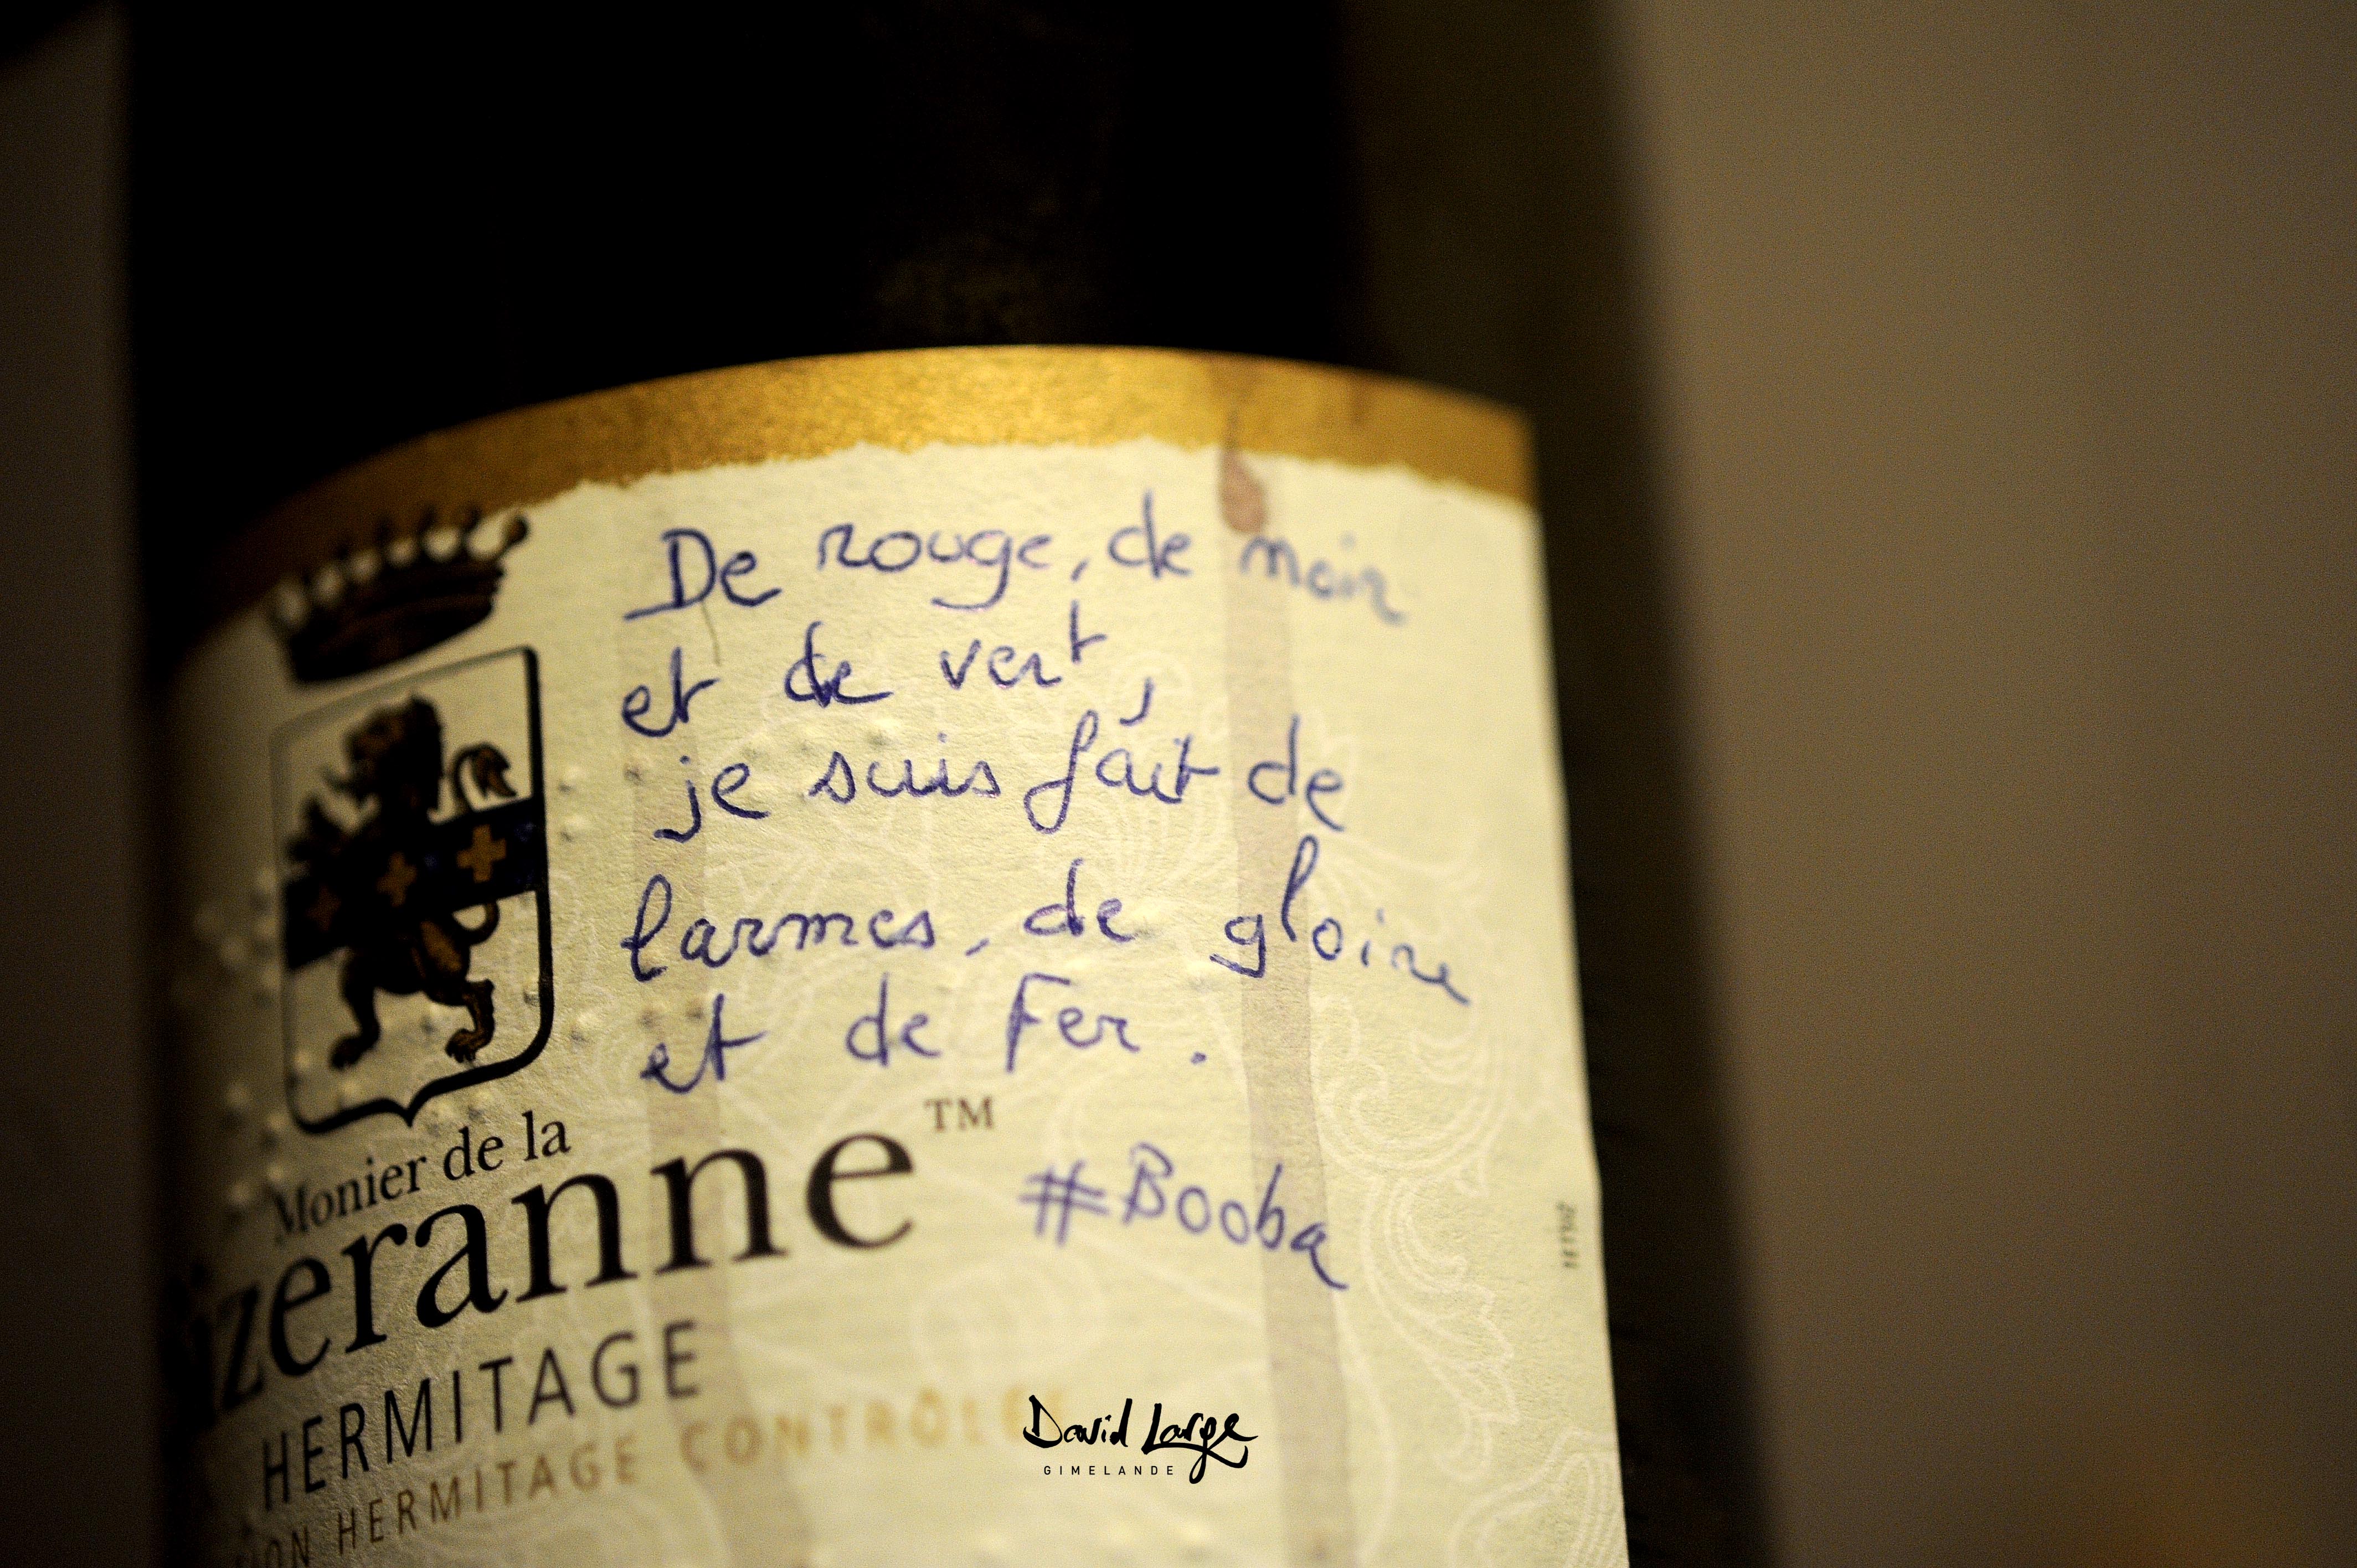 De rouge, de noir
et de vert,
je suis fait de
larmes, de gloire
et de Fer.
#Booba
Monier de la
izeranne™
HERMITAGE
ION HERMITAGE CONTRÔLÉE
David Large
GIMELANDE